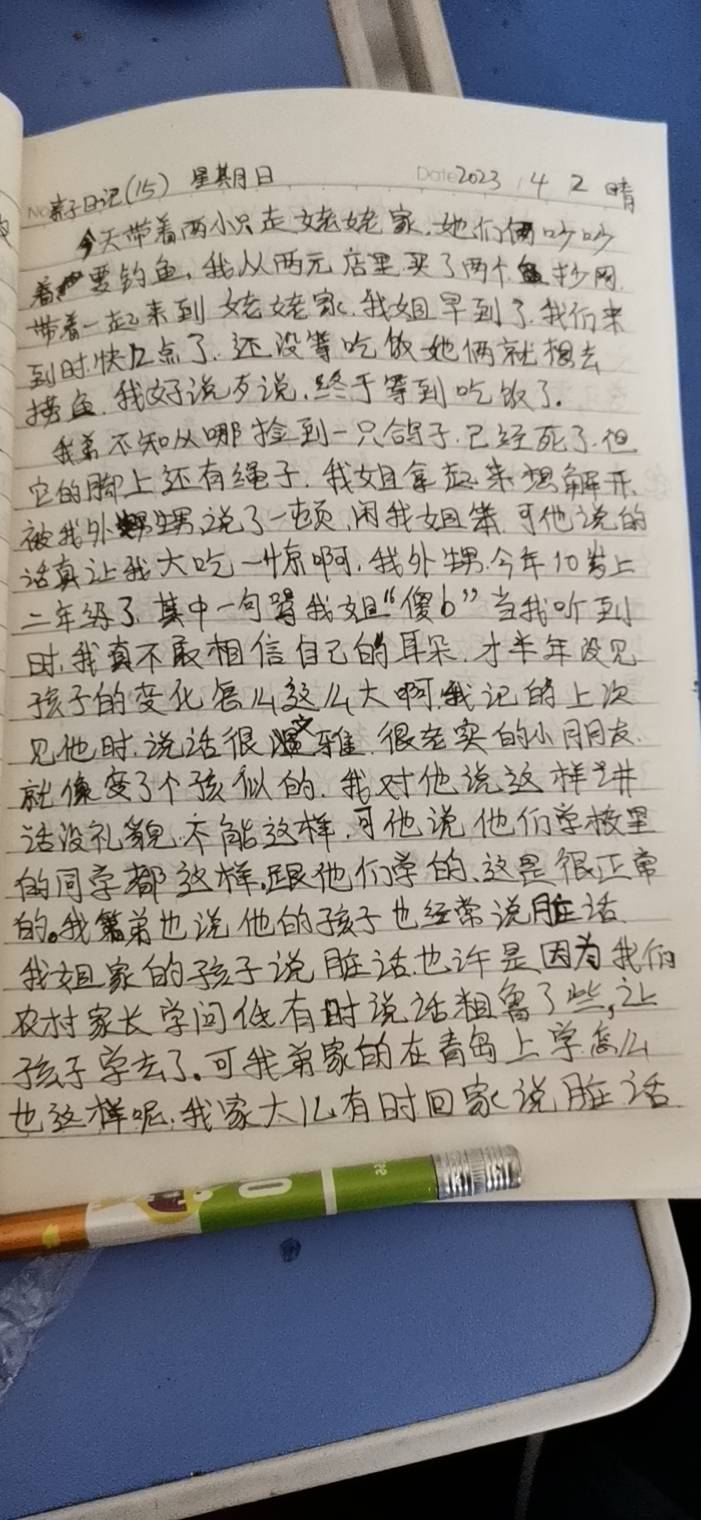 亲子日记(15) 星期日 Date 2023 4 2 晴
今天带着两小只走姥姥家.她们俩吵吵
着要钓鱼,我从两元店里买了两个抄网.
带着一起来到姥姥家.我姐早到了.我们来
到时.快12点了.还没等吃饭她俩就想去
捞鱼.我好说歹说.终于等到吃饭了.
我弟不知从哪捡到一只鸽子.已经死了.但
它的脚上还有绳子.我姐拿起来想解开.
被我外甥说了一顿,闲我姐笨.可他说的
话真让我大吃一惊啊,我外甥.今年10岁上
二年级了.其中一句骂我姐“傻b”当我听到
时,我真不敢相信自己的耳朵.才半年没见
孩子的变化怎么这么大啊.我记的上次
见他时.说话很文雅.很老实的小朋友.
就像变了个孩似的.我对他说这样讲
话没礼貌.不能这样.可他说他们学校里
的同学都这样,跟他们学的.这是很正常
的。我弟弟也说他的孩子也经常说脏话
我姐家的孩子说脏话.也许是因为我们
农村家长学问低有时说话粗鲁了些,让
孩子学去了。可我弟家的在青岛上学怎么
也这样呢.我家大儿有时回家说脏话